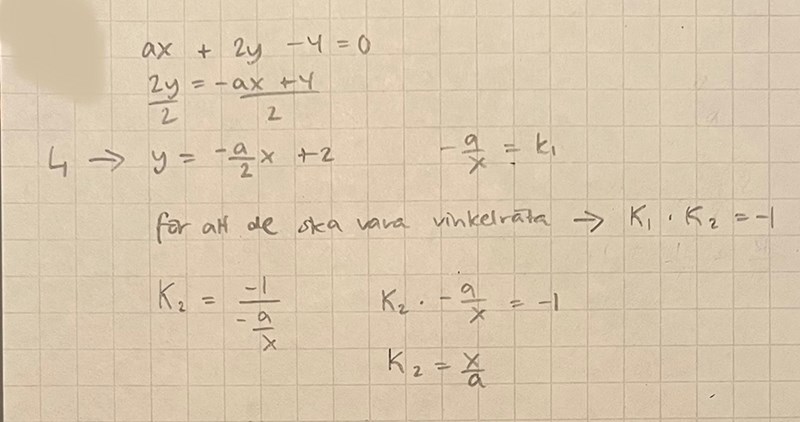 ax + 2y - 4 = 0
2y/2 = -ax + 4/2
L₁ → y = -a/2 x + 2 -a/x = k₁
för att de ska vara vinkelräta → K₁ · K₂ = -1
K₂ = -1/(-a/x) K₂ · -a/x = -1
K₂ = x/a